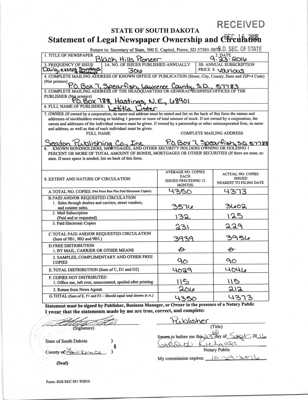 RECEIVED
STATE OF SOUTH DAKOTA
Statement of Legal Newspaper Ownership and Circulation
Return to: Secretary of State, 500 E. Capitol, Pierre, SD 57501-5070 S.D. SEC. OF STATE
1. TITLE OF NEWSPAPER Black Hills Pioneer 9-23-2016
3. FREQUENCY OF ISSUE
Daily, except Sundays
3A. NO. OF ISSUES PUBLISHED ANNUALLY
304
3B. ANNUAL SUBSCRIPTION
PRICE $ various
4. COMPLETE MAILING ADDRESS OF KNOWN OFFICE OF PUBLICATION (Street, City, County, State and ZIP+4 Code)
(Not printers) P.O. Box 7, Spearfish, Lawrence County, S.D., 57783
5. COMPLETE MAILING ADDRESS OF THE HEADQUARTERS OF GENERAL BUSINESS OFFICES OF THE
PUBLISHER (Not printer)
P.O. Box 788, Hastings, N.E., 68901
6. FULL NAME OF PUBLISHER: Letitia Lister
7. OWNER (If owned by a corporation, its name and address must be stated and list on the back of this form the names and
addresses of stockholders owning or holding 1 percent or more of total amount of stock. If not owned by a corporation, the
names and addresses of the individual owners must be given. If owned by a partnership or other unincorporated firm, its name
and address, as well as that of each individual must be given.
FULL NAME COMPLETE MAILING ADDRESS
Seaton Publishing Co., Inc. P.O. Box 7, Spearfish, S.D. 57783
8. KNOWN BONDHOLDERS, MORTGAGES, AND OTHER SECURITY HOLDERS OWNING OR HOLDING 1
PERCENT OR MORE OF TOTAL AMOUNT OF BONDS, MORTGAGES OR OTHER SECURITIES (If there are none, so
state. If more space is needed, list on back of this form.
9. EXTENT AND NATURE OF CIRCULATION
AVERAGE NO. COPIES
EACH
ISSUED PRECEDING 12
MONTHS
ACTUAL NO. COPIES
ISSUED
NEAREST TO FILING DATE
A. TOTAL NO. COPIES (Net Press Run Plus Paid Electronic Copies) 4350 4373
B. PAID AND/OR REQUESTED CIRCULATION
1. Sales through dealers and carriers, street vendors,
and counter sales. 3576 3602
2. Mail Subscriptions
(Paid and or requested) 132 125
3. Paid Electronic Copies 231 229
C. TOTAL PAID AND/OR REQUESTED CIRCULATION
(Sum of 9B1, 9B2 and 9B3.) 3939 3956
D. FREE DISTRIBUTION
1. BY MAIL, CARRIER OR OTHER MEANS
2. SAMPLES, COMPLIMENTARY AND OTHER FREE
COPIES 90 90
E. TOTAL DISTRIBUTION (Sum of C, D1 and D2) 4029 4046
F. COPIES NOT DISTRIBUTED
1. Office use, left over, unaccounted, spoiled after printing 115 115
2. Return from News Agents 206 212
G. TOTAL (Sum of E, F1 and F2 - Should equal total shown in A.) 4350 4373
Statement must be signed by Publisher, Business Manager, or Owner in the presence of a Notary Public
I swear that the statements made by me are true, correct, and complete:
Publisher
(Signature) (Title)
State of South Dakota )
) §
County of Lawrence )
Sworn to before me this 23 day of Sept. 2016
Notary Public
(Seal)
My commission expires: